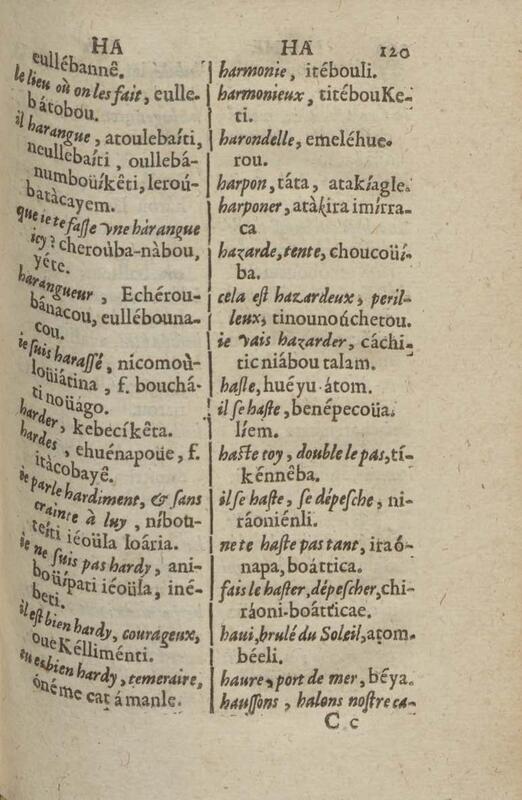 HA
eullébannê.
le lieu où on les fait, eulle-
bátobou.
il harangue, atoulebaíti,
neullebaíti, oullebá-
numboüíkêti, leroú-
batàcayem.
que ie te fasse vne hàrangue
icy? cheroùba-nàbou,
yéte.
harangueur, Echérou-
bánacou, eullébouna-
cou.
ie suis harassé, nicomoù-
loüiátina, f. bouchá-
ti noüágo.
harder, kebecíkêta.
hardes, ehuénapoüe, f.
itàcobayê.
ie parle hardiment, & sans
crainte à luy, níbou-
teíti iéoüla loária.
ie ne suis pas hardy, ani-
boüípati iéoüla, iné-
beti.
il est bien hardy, courageux,
oueKélliménti.
tu es bien hardy, temeraire,
ónéme cat ámanle.
HA 120
harmonie, itébouli.
harmonieux, titébouKe-
ti.
harondelle, emeléhue-
rou.
harpon, táta, atakíagle.
harponer, atàkira imírra-
ca
hazarde, tente, choucoüí-
ba.
cela est hazardeux, peril-
leux, tinounoúchetou.
ie vais hazarder, cáchi-
tic niábou talam.
haste, huéyu-átom.
il se haste, benépecoüa-
líem.
haste toy, double le pas, tí-
kénnêba.
il se haste, se dépesche, ni-
ráoniénli.
ne te haste pas tant, iraó-
napa, boáttica.
fais le haster, dépescher, chi-
ráoni-boátticae.
haui, brulé du Soleil, atom-
béeli.
haure, port de mer, béya.
haussons, halons nostre ca-
C c